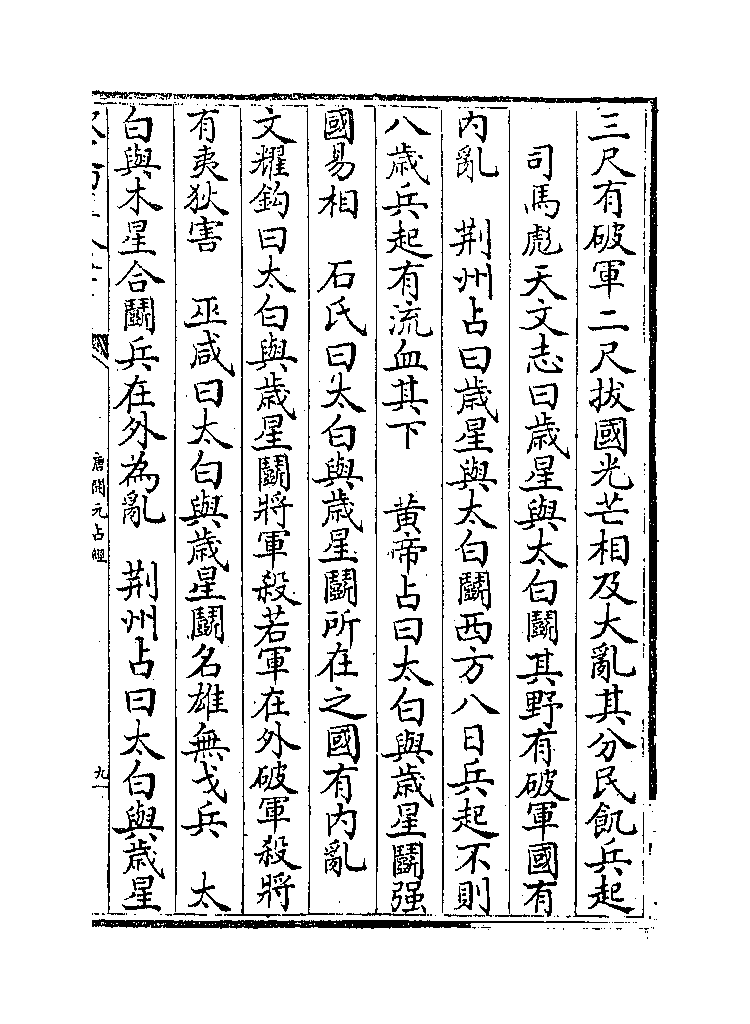 三尺有破軍二尺拔國光芒相及大亂其分民飢兵起
司馬彪天文志曰歳星與太白鬭其野有破軍國有
内亂　荆州占曰歳星與太白鬭西方八日兵起不則
八歳兵起有流血其下　黄帝占曰太白與歳星鬭强
國易相　石氏曰太白與歳星鬭所在之國有内亂
文耀鈎曰太白與歳星鬭將軍殺若軍在外破軍殺將
有夷狄害　巫咸曰太白與歳星鬭名雄無戈兵　太
白與木星合鬭兵在外為亂　荆州占曰太白與歳星
唐開元占經
九